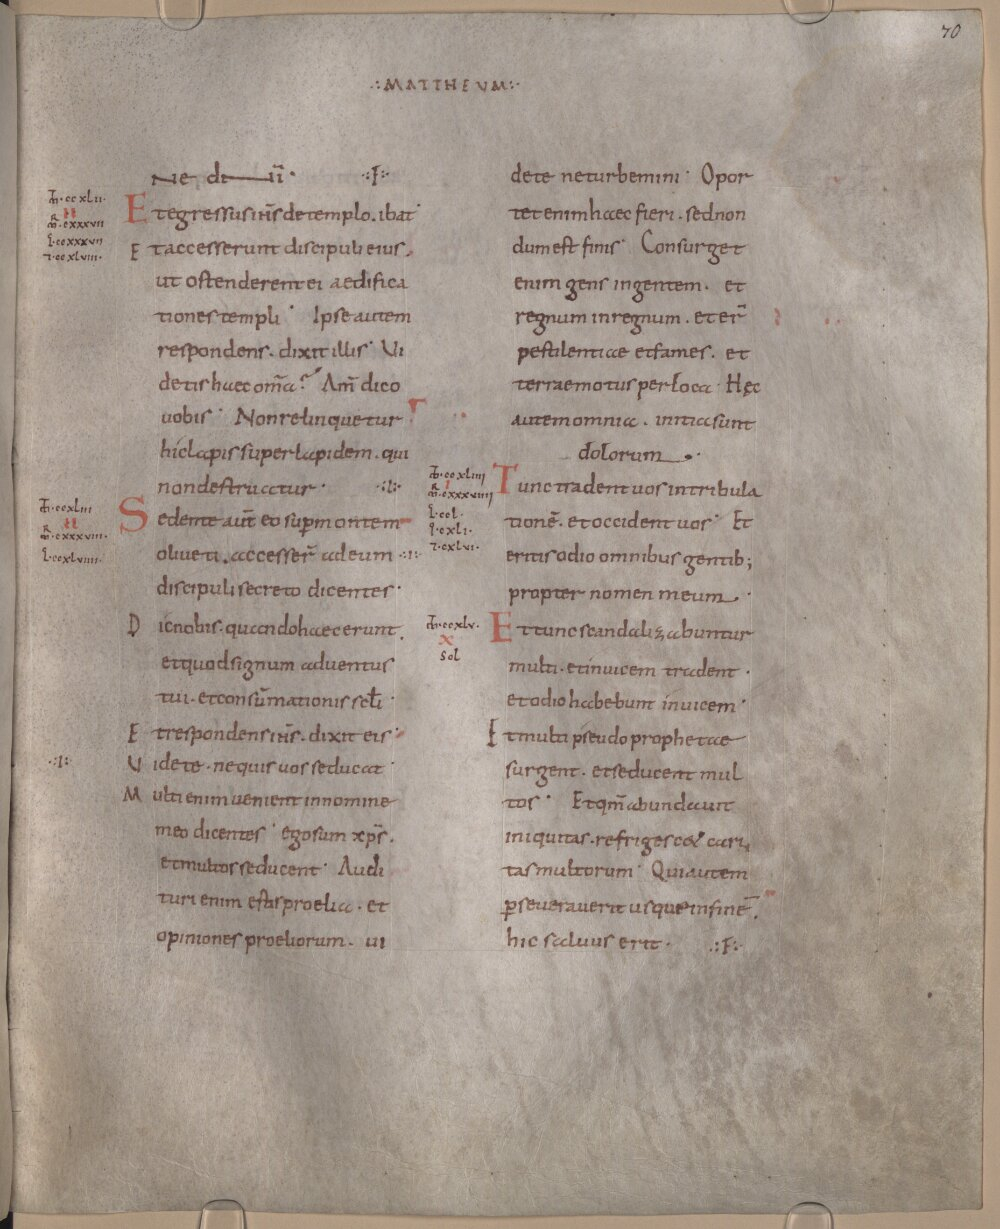 70
·:MATTHEUM:·
ne di ii ·:I:·
Et egressus ihs de templo. ibat
Et accesserunt discipuli eius.
ut ostenderent ei aedifica
tiones templi· Ipse autem
respondens. dixit illis· Vi
detis haec omña? Am̄ dico
uobis· Non relinquetur
hic lapis super lapidem. qui
non destruatur· ·:I:·
Sedente aut̄ eo sup montem
oliueti. accesser̄ ad eum ·:I:·
discipuli secreto dicentes·
Dic nobis. quando haec erunt.
et quod signum aduentus
tui. et consūmationis scłi·
Et respondens ihs. dixit eis
·:I:· Videte. ne quis uos seducat
Multi enim uenient in nomine
meo dicentes· ego sum xps.
et multos seducent· Audi
turi enim estis proelia. et
opiniones proeliorum. ui
dete ne turbemini· Opor
tet enim haec fieri. sed non
dum est finis· Consurget
enim gens in gentem. et
regnum in regnum. et er̄
pestilentiae et fames. et
terraemotus per loca· Hęc
autem omnia. initia sunt
dolorum.
Tunc tradent uos in tribula
tionē. et occident uos· Et
eritis odio omnibus gentib;
propter nomen meum.
Et tunc scandalizabuntur
multi. et inuicem tradent.
et odio habebunt inuicem·
Et multi pseudoprophetae
surgent. et seducent mul
tos· Et qm̄ abundauit
iniquitas. refrigescet cari
tas multorum· Qui autem
pseuerauerit usque in finē.
hic saluus erit· ·:F:·